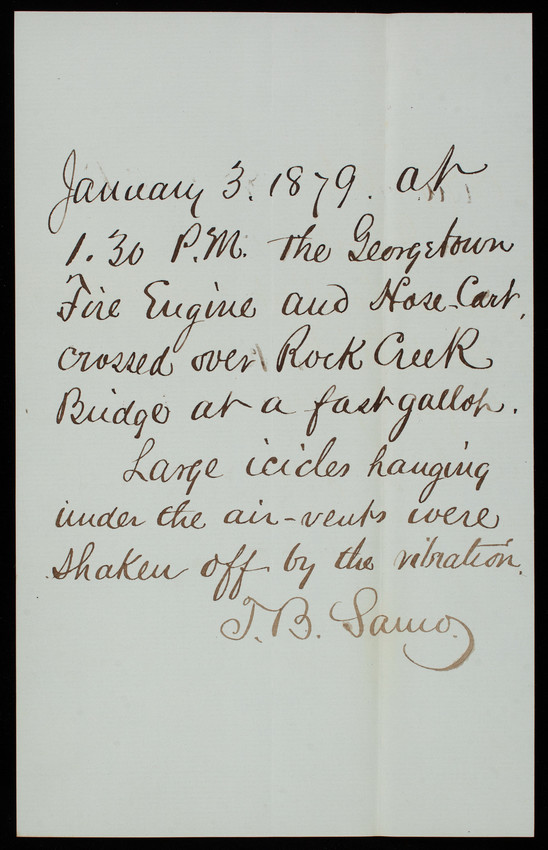 January 3. 1879. at
1.30 P.M. the Georgetown
Fire Engine and Hose-Cart,
crossed over Rock Creek
Bridge at a fast gallop.
Large icicles hanging
under the air-vents were
shaken off by the vibration.
T. B. Samo.